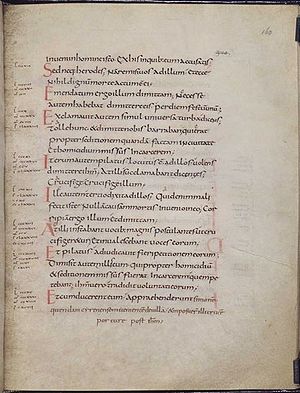 160
inuenio in homine isto ex his in quib; eum accusatis
Sed neq; herodes Nam remisi uos ad illum et ecce
Nihil dignum morte actum ē ei
Emendatum ergo illum dimittam. Necesse
autem habebat dimittere eis per diem festū unū
Exclamauit autem simul uniuersa turba dicens
Tolle hunc et dimitte nobis barabban qui erat
propter seditionem quandam factam in ciuitate
Et homicidium missus in carcerem
Iterum autem pilatus locutus ē ad illos uolens
dimittere ihm. At illi succlamabant dicentes
Crucifige crucifige illum
Ille autem tertio dixit ad illos Quid enim mali
fecit iste Nullā causā mortis inuenio in eo. Cor
ripiam ergo illum et dimittam.
At illi instabant uocib; magnis postulantes ut cru
cifigeretur et inualescebant uoces eorum.
Et pilatus adiudicauit fieri petitionem eorum
Dimisit autem illum qui propter homicidiū
et seditionem missus fuerat in carcerem quem pe
tebant ihm uero tradidit uoluntati eorum.
Et cum ducerent eum apprehenderunt simonē
quendam cyrenensem uenientem de uilla et imposuer illi crucē
portare post ihm